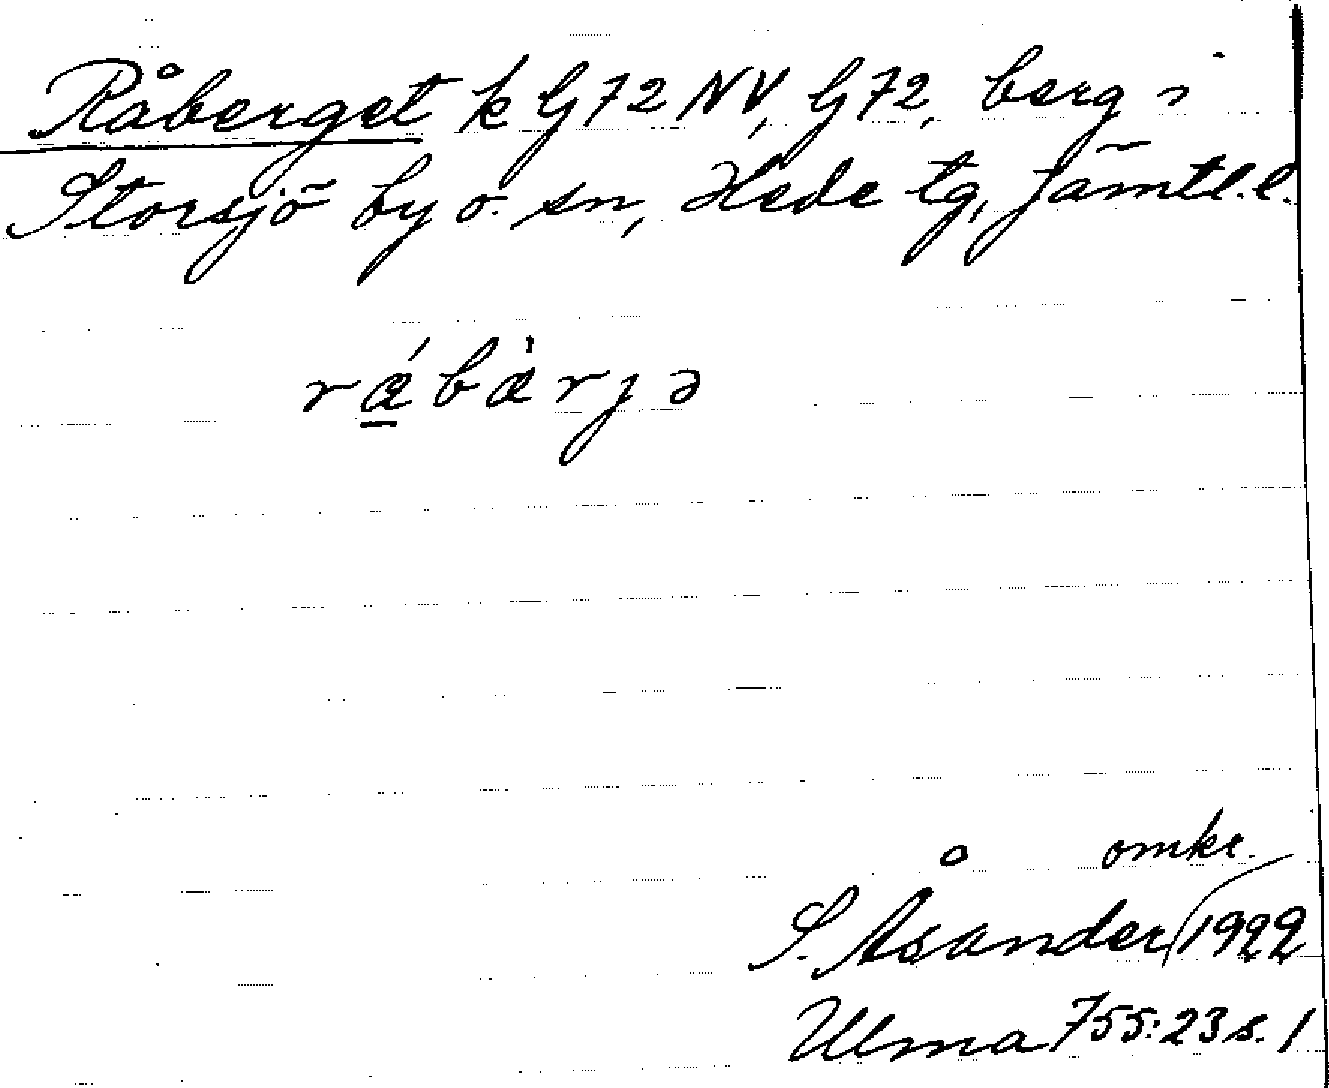 Råberget k G72 NV, G72, berg i
Storsjö by o. sn, Hede tg, Jämtl.l.
rǽ̱bæ̀rjə
omkr.
S. Åsander 1922
Ulma 755:23 s. 1